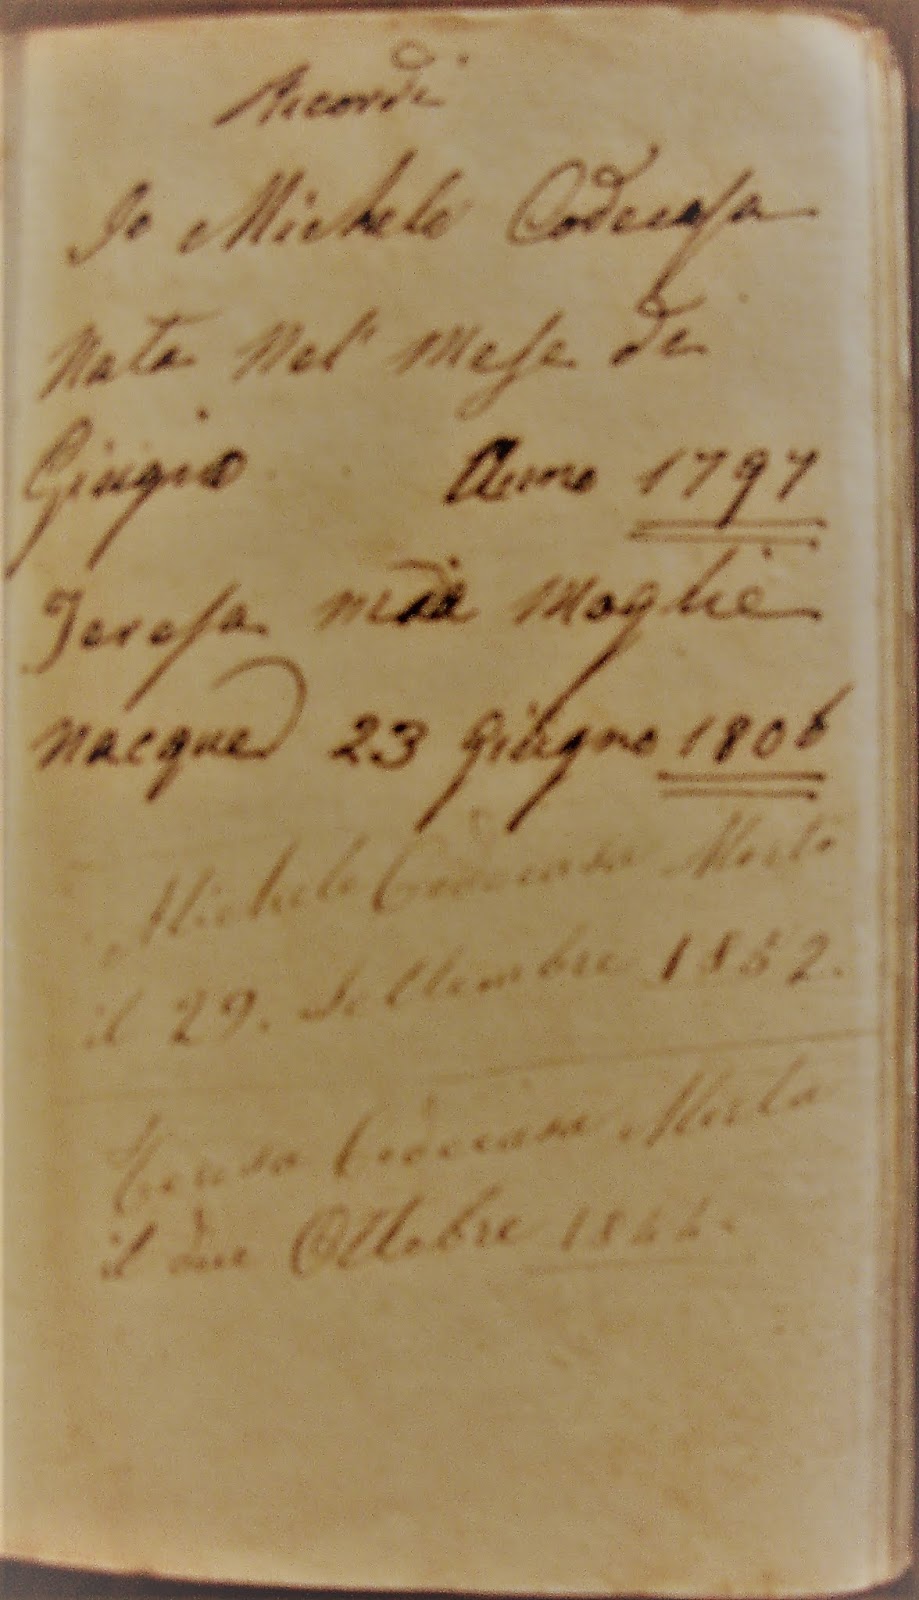 Ricordi
Io Michele Codecasa
Nata Nel mese di
Giugno Anno 1797
Teresa mia Moglie
Nacque 23 Giugno 1806
Michele Codecasa Morto
il 29. Settembre 1852.
Teresa Codecasa Morta
il due Ottobre